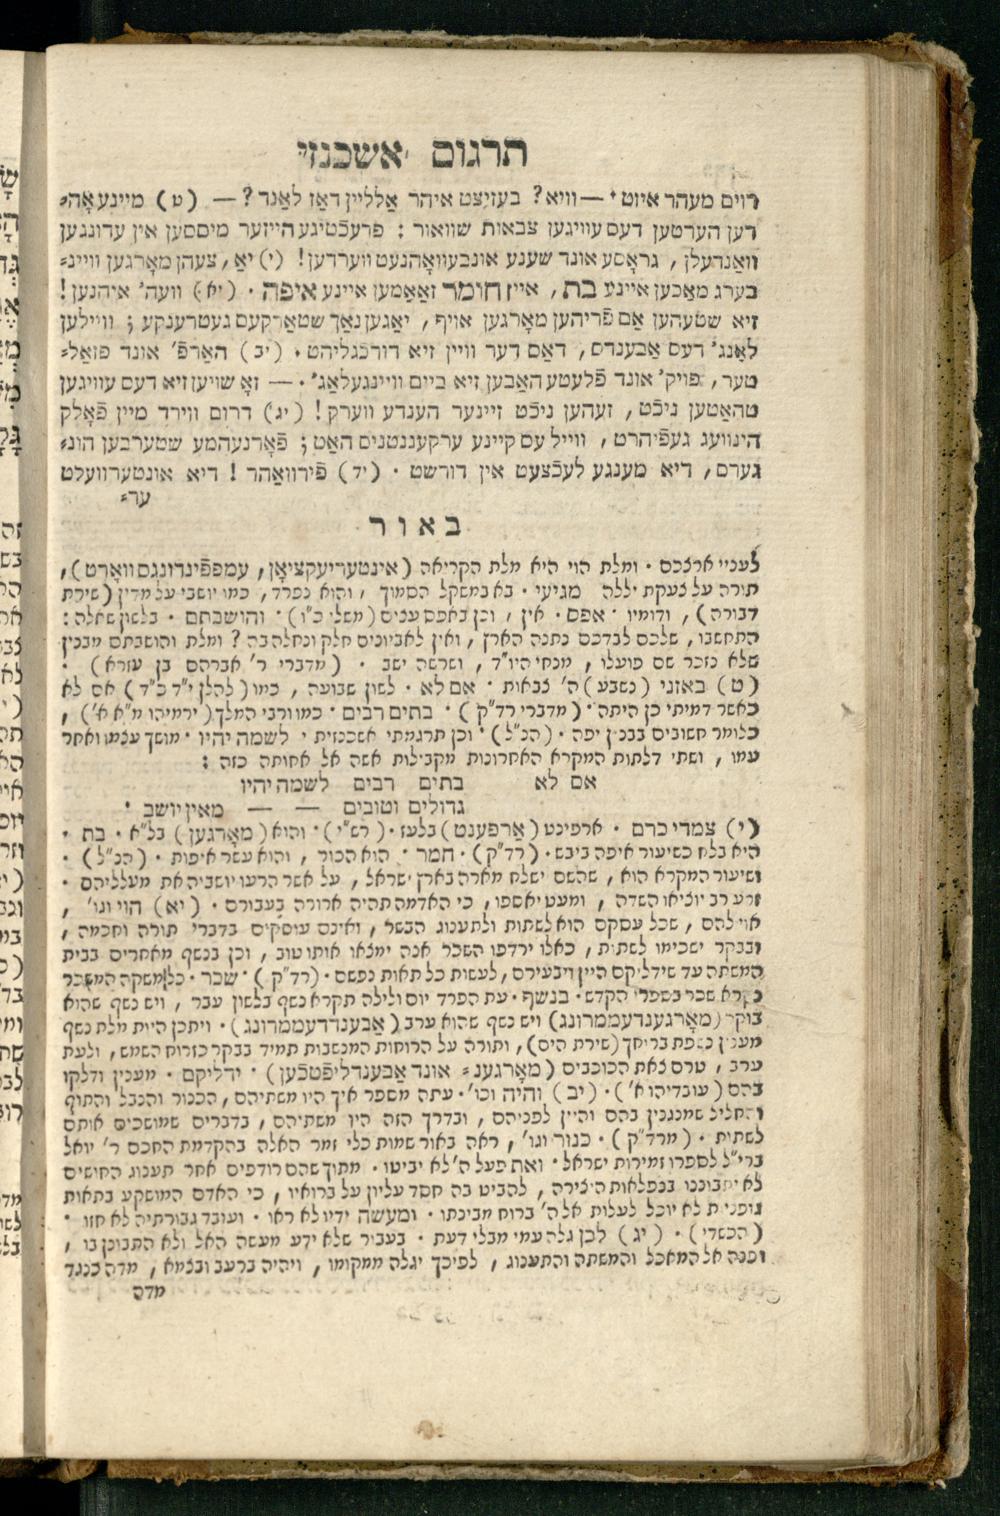 תרגום אשכנזי
רוים מעהר איזט — וויא? בעזיצט איהר אַלליין דאַז לאַנד? — (ט) מיינע אָה⸗
רען הערטען דעס עוויגען צבאות שוואור : פרעכטיגע הייזער מיססען אין עדונגען
וואַנדעלן, גראָסע אונד שענע אונבעוואָהנעט ווערדען! (י) יאַ, צעהן מאָרגען וויינ⸗
בערג מאַכען איינע בת, איין חומר זאַאַמען איינע איפה . (יא) וועה' איהנען!
זיא שטעהען אַם פֿריהען מאָרגען אויף, יאַגען נאַך שטאַרקעם געטרענקע ; וויילען
לאַנג' דעס אַבענדס, דאַס דער וויין זיא דורכגליהט . (יב) האַרפֿ' אונד פּזאַל⸗
טער, פויק' אונד פֿלעטע האָבען זיא ביים וויינגעלאַג' . — זאָ שויען זיא דעס עוויגען
טהאַטען ניכֿט, זעהען ניכֿט זיינער הענדע ווערק! (יג) דרום ווירד מיין פֿאָלק
הינוועג געפֿיהרט, ווייל עס קיינע ערקעננטניס האַט ; פֿאָרנעהמע שטערבען הונ⸗
גערס, דיא מענגע לעכֿצעט אין דורשט . (יד) פֿירוואַהר ! דיא אונטערוועלט
ער⸗
באור
לעניי ארככם . ומלת הוי היא מלת הקריאה (אינטעריעקציאָן, עמפפֿינדונגסוואָרט),
תורה על צעקת יללה מגיעי . בא במשקל הסמוך , והוא נפרד, כמו יושבי על מדין (שירת
דבורה) , ודומיו . אפס . אין , וכן באפס עצים (משלי כ"ו) . והושבתם . בלשון שאלה :
התחשבו, שלכם לבדכם נתנה הארץ , ואין לאביונים חלק ונחלה בה ? ומלת והושבתם מבנין
שלא נזכר שם פועלו , מנחי היו"ד , ושרשה ישב . (מדברי ר' אברהם בן עזרא) .
(ט) באזני (נשבע) ה' צבאות . אם לא . לשון שבועה , כמו (להלן י"ד כ"ד) אם לא
כאשר דמיתי כן היתה . (מדברי רד"ק) . בתים רבים . כמו ורבי המלך (ירמיהו מ"א א') ,
כלומר חשובים בבנין יפה . (הנ"ל) . וכן תרגמתי אשכנזית . לשמה יהיו . מושך עצמו ואחר
עמו , ושתי דלתות המקרא האחרונות מקבילות אשה אל אחותה כזה :
אם לא בתים רבים לשמה יהיו
גדולים וטובים — — מאין יושב .
(י) צמדי כרם . ארפינט (אַרפּענט) בלעז . (רש"י) . והוא (מאָרגען) בל"א . בת .
היא בלח כשיעור איפה ביבש . (רד"ק) . חמר . הוא הכור , והוא עשר איפות . (הנ"ל) .
ושיעור המקרא הוא , שהשם ישלח מארה בארץ ישראל , על אשר הרעו יושביה את מעלליהם .
זרע רב יוציאו השדה , ומעט יאספו , כי האדמה תהיה ארורה בעבורם . (יא) הוי וגו' ,
אוי להם , שכל עסקם הוא לשתות ולתענוג הבשר , ואינם עוסקים בדברי תורה וחכמה ,
ובבקר ישכימו לשתית , כאלו ירדפו השכר אנה ימצאו אותו טוב , וכן בנשף מאחרים בבית
המשתה עד שידליקם היין ויבעירם , לעשות כל תאות נפשם . (רד"ק) . שכר . כל משקה המשכר
נקרא שכר בספרי הקדש . בנשף . עת הפרד יום ולילה תקרא נשף בלשון עבר , ויש נשף שהוא
בוקר (מאָרגענדעממרונג) ויש נשף שהוא ערב (אַבענדדעממרונג) . ויתכן היות מלת נשף
מענין נשפת ברוחך (שירת הים) , ותורה על הרוחות המנשבות תמיד בבקר כזרוח השמש , ולעת
ערב , טרם צאת הכוכבים (מאָרגענ⸗ אונד אַבענדליפֿטכֿען) . ידליקם . מענין ודלקו
בהם (עובדיה א') . (יב) והיה וכו' . עתה מספר איך היו משתיהם , הכנור והנבל והתוף
והחליל שמנגנין בהם והיין לפניהם , ובדרך הזה היו משתיהם , בדברים שמושכים אותם
לשתית . (מרד"ק) . כנור וגו' , ראה באור שמות כלי זמר האלה בהקדמת החכם ר' יואל
ברי"ל לספרו זמירות ישראל . ואת פעל ה' לא יביטו . מתוך שהם רודפים אחר תענוג החושים
לא יתבוננו בנפלאות היצירה , להביט בה חסד עליון על ברואיו , כי האדם המושקע בתאות
גופניות לא יוכל לעלות אל ה' ברוח מבינתו . ומעשה ידיו לא ראו . ועובד גבורתיה לא חזו .
(הכשדי) . (יג) לכן גלה עמי מבלי דעת . בעביר שלא ידע מעשה האל ולא התבונן בו ,
ופנה אל המאכל והמשתה והתענוג , לפיכך יגלה ממקומו , ויהיה ברעב ובצמא , מדה כנגד
מדה